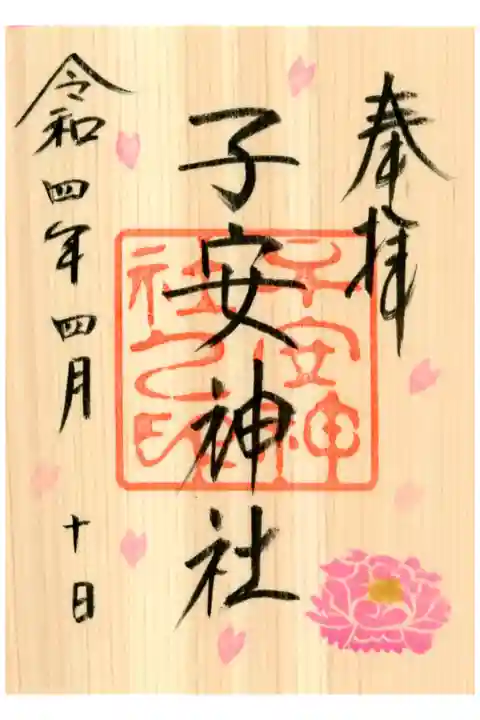 奉拝
子安神社
子安神社之印
令和四年四月十日